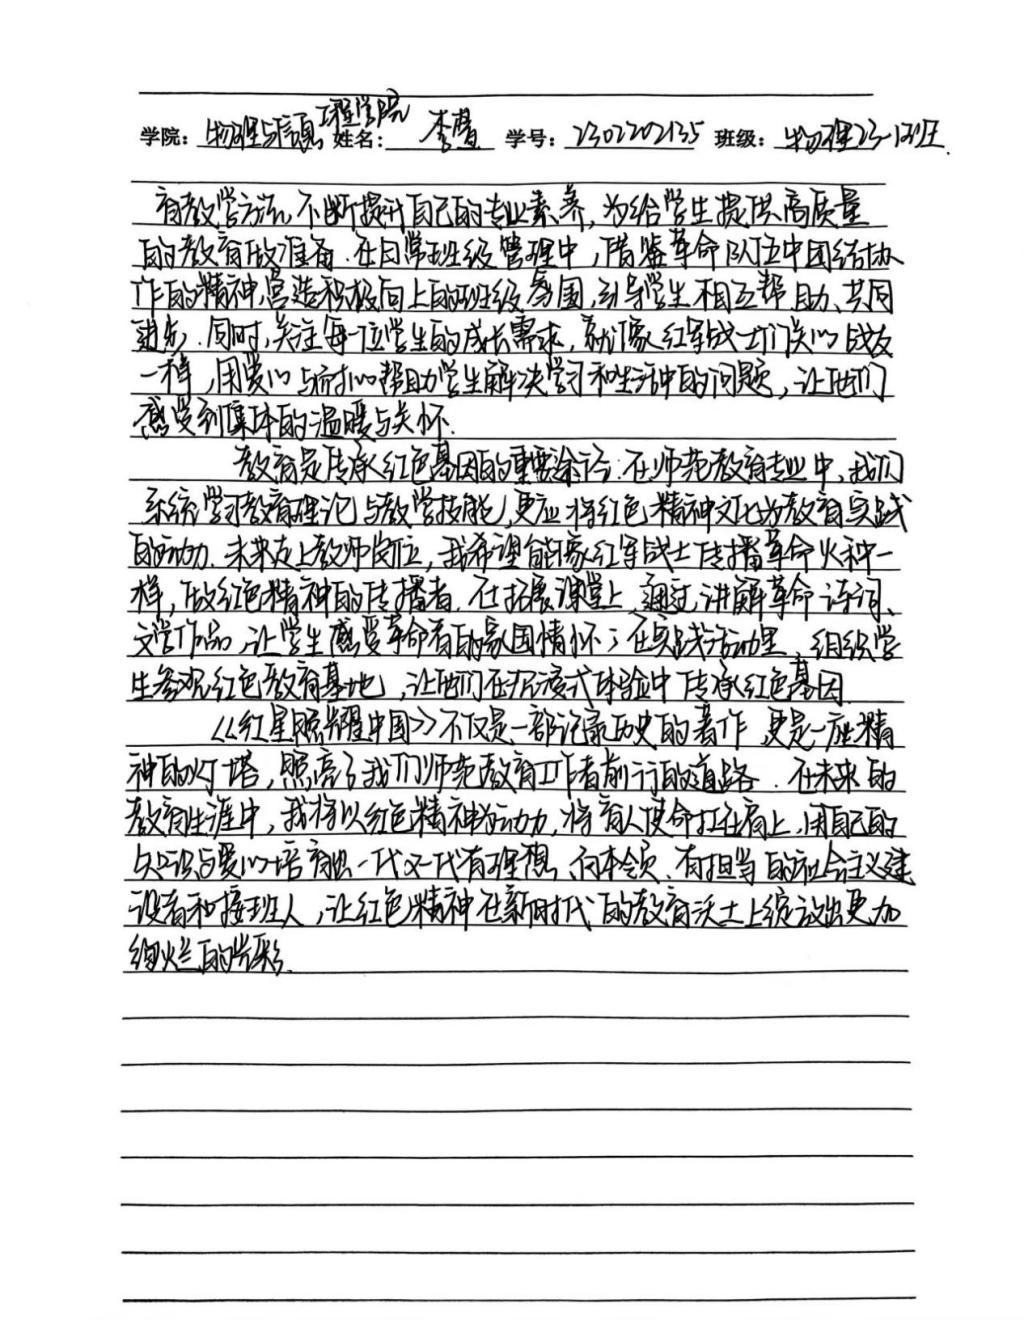 学院：物理与信息工程学院 姓名：李慧 学号：2302202135 班级：物理23-1班
育教学方法，不断提升自己的专业素养，为给学生提供高质量
的教育做准备.在日常班级管理中，借鉴革命队伍中团结协
作的精神，营造积极向上的班级氛围，引导学生相互帮助、共同
进步.同时，关注每一位学生的成长需求，就像红军战士们关心战友
一样，用爱心与耐心帮助学生解决学习和生活中的问题，让他们
感受到集体的温暖与关怀.
教育是传承红色基因的重要途径.在师范教育专业中，我们
系统学习教育理论与教学技能，更应将红色精神文化为教育实践
的动力.未来走上教师岗位，我希望能像红军战士传播革命火种一
样，做红色精神的传播者.在拓展课堂上，通过讲解革命诗词、
文学作品，让学生感受革命者的家国情怀；在实践活动里，组织学
生参观红色教育基地，让他们在沉浸式体验中传承红色基因.
《红星照耀中国》不仅是一部记录历史的著作，更是一座精
神的灯塔，照亮了我们师范教育工作者前行的道路.在未来的
教育生涯中，我将以红色精神为动力，将育人使命扛在肩上，用自己的
知识与爱心培育出一代又一代有理想、有本领、有担当的社会主义建
设者和接班人，让红色精神在新时代的教育沃土上绽放出更加
绚烂的光彩.